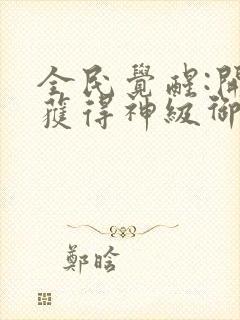 全民覺醒:開
獲得神級御
鄭晗